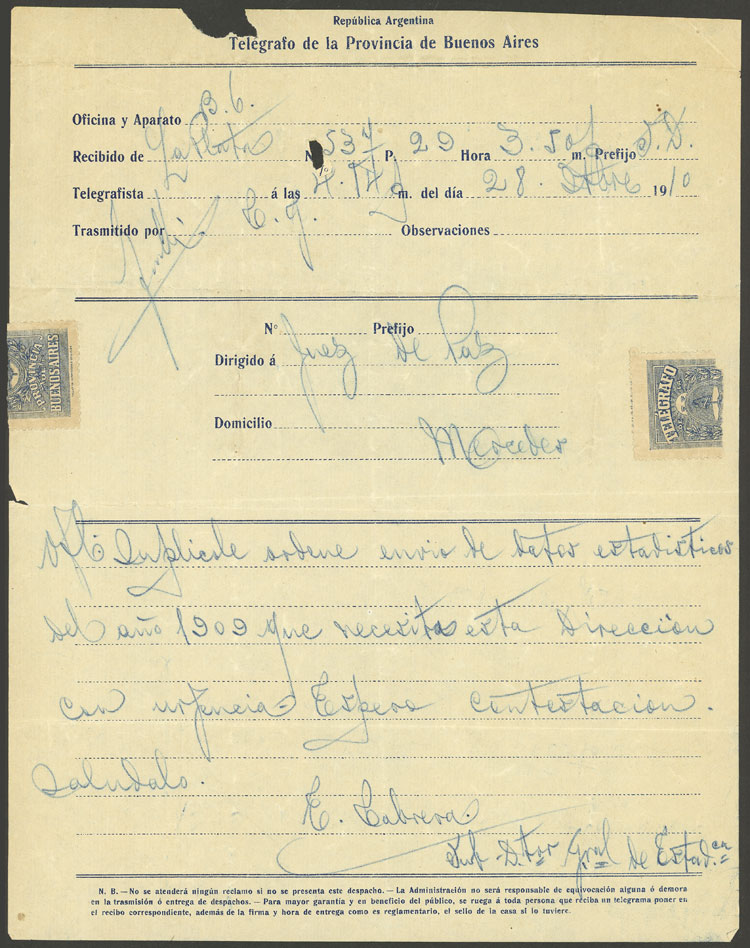 República Argentina
Telégrafo de la Provincia de Buenos Aires
Oficina y Aparato B. 6.
Recibido de La Plata N 537 P. 29 Hora 3.50 m. Prefijo
Telegrafista á las 4. m. del día 28. 1910
Trasmitido por Observaciones
Nº Prefijo
Dirigido á Juez de Paz
Domicilio
Mercedes
PROVINCIA
DE
BUENOS AIRES
TELÉGRAFO
Suplicole ordene envio de datos estadisticos
del año 1909 que necesita esta Direccion
con urjencia= Espero contestacion.
Saludalo.
E. Cabrera.
Sub-D.tor Gral de Estad.ca
N. B. — No se atenderá ningún reclamo si no se presenta este despacho. — La Administración no será responsable de equivocación alguna ó demora
en la trasmisión ó entrega de despachos. — Para mayor garantía y en beneficio del público, se ruega á toda persona que reciba un telegrama poner en
el recibo correspondiente, además de la firma y hora de entrega como es reglamentario, el sello de la casa si lo tuviere.